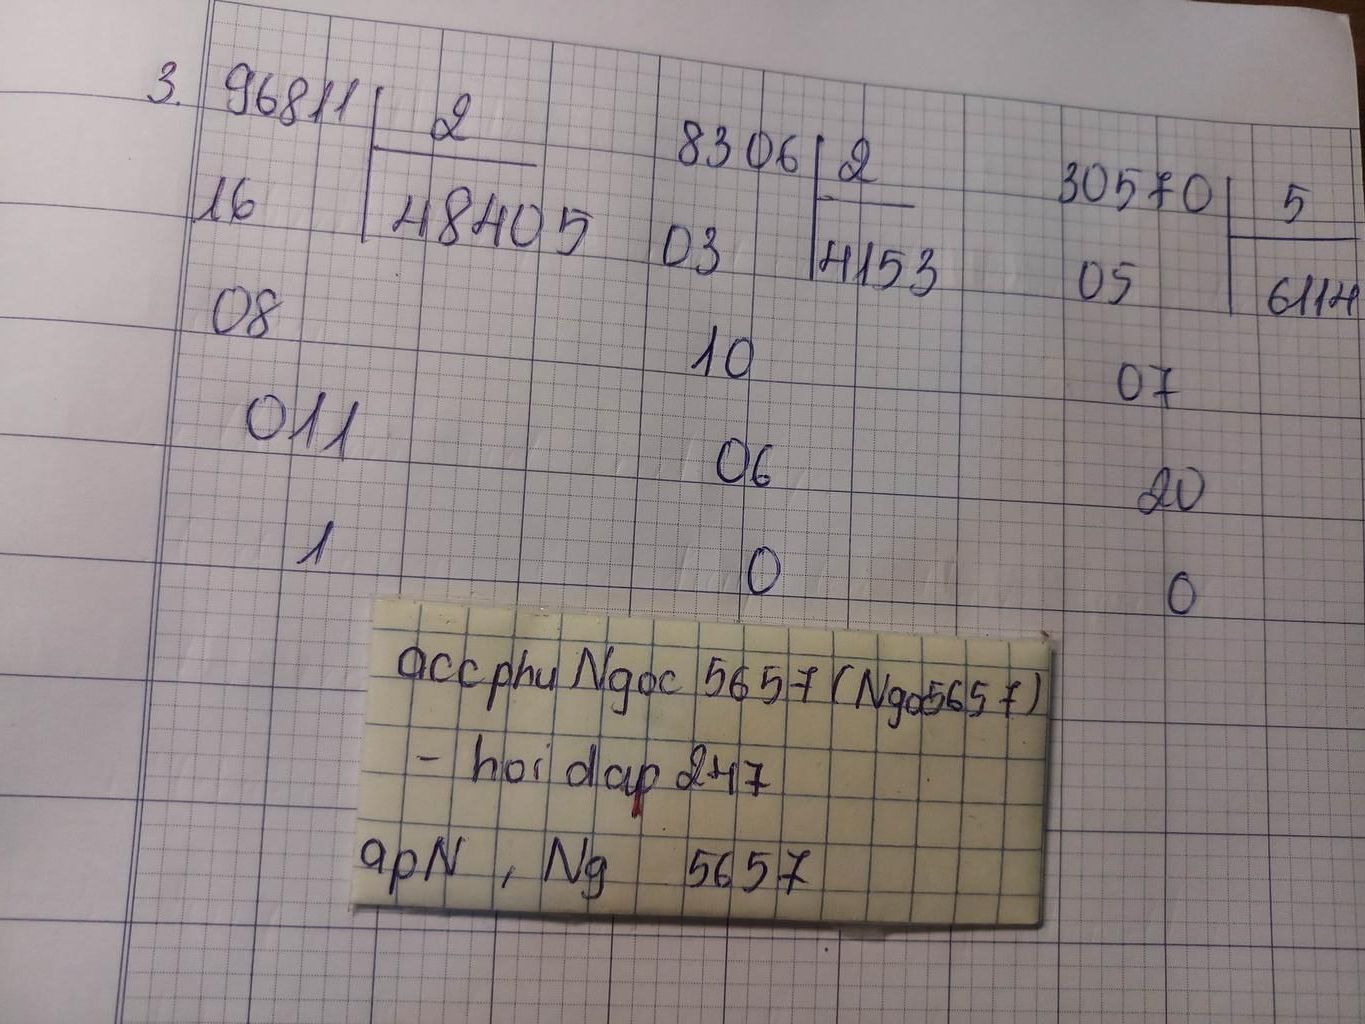 3. 96811 2 8306 2 30570 5
16 48405 03 4153 05 6114
08 10 07
011 06 20
1 0 0
accphu Ngoc 5657 (Ngo5657)
- hoi dap 247
apN , Ng 5657